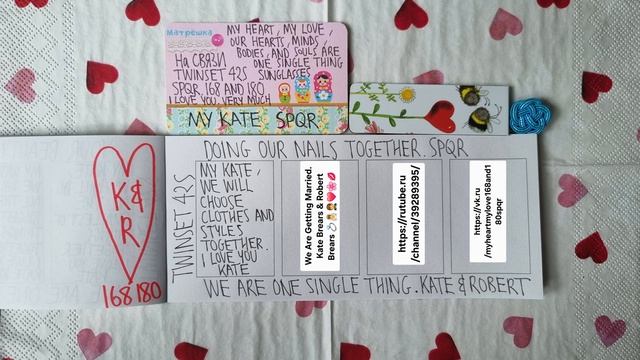 Матрёшка
MY HEART, MY LOVE,
OUR HEARTS, MINDS,
BODIES, AND SOULS ARE
ONE SINGLE THING
На СВЯЗИ
TWINSET 42S SUNGLASSES
SPQR. 168 AND 180.
I LOVE YOU VERY MUCH
MY KATE SPQR
DOING OUR NAILS TOGETHER. SPQR
K&
R
168 180
TWINSET 42S
MY KATE,
WE WILL
CHOOSE
CLOTHES AND
STYLES
TOGETHER.
I LOVE YOU
KATE
We Are Getting Married.
Kate Brears & Robert
Brears
https://rutube.ru
/channel/39289395/
https://vk.ru
/myheartmylove168and1
80spqr
WE ARE ONE SINGLE THING. KATE & ROBERT